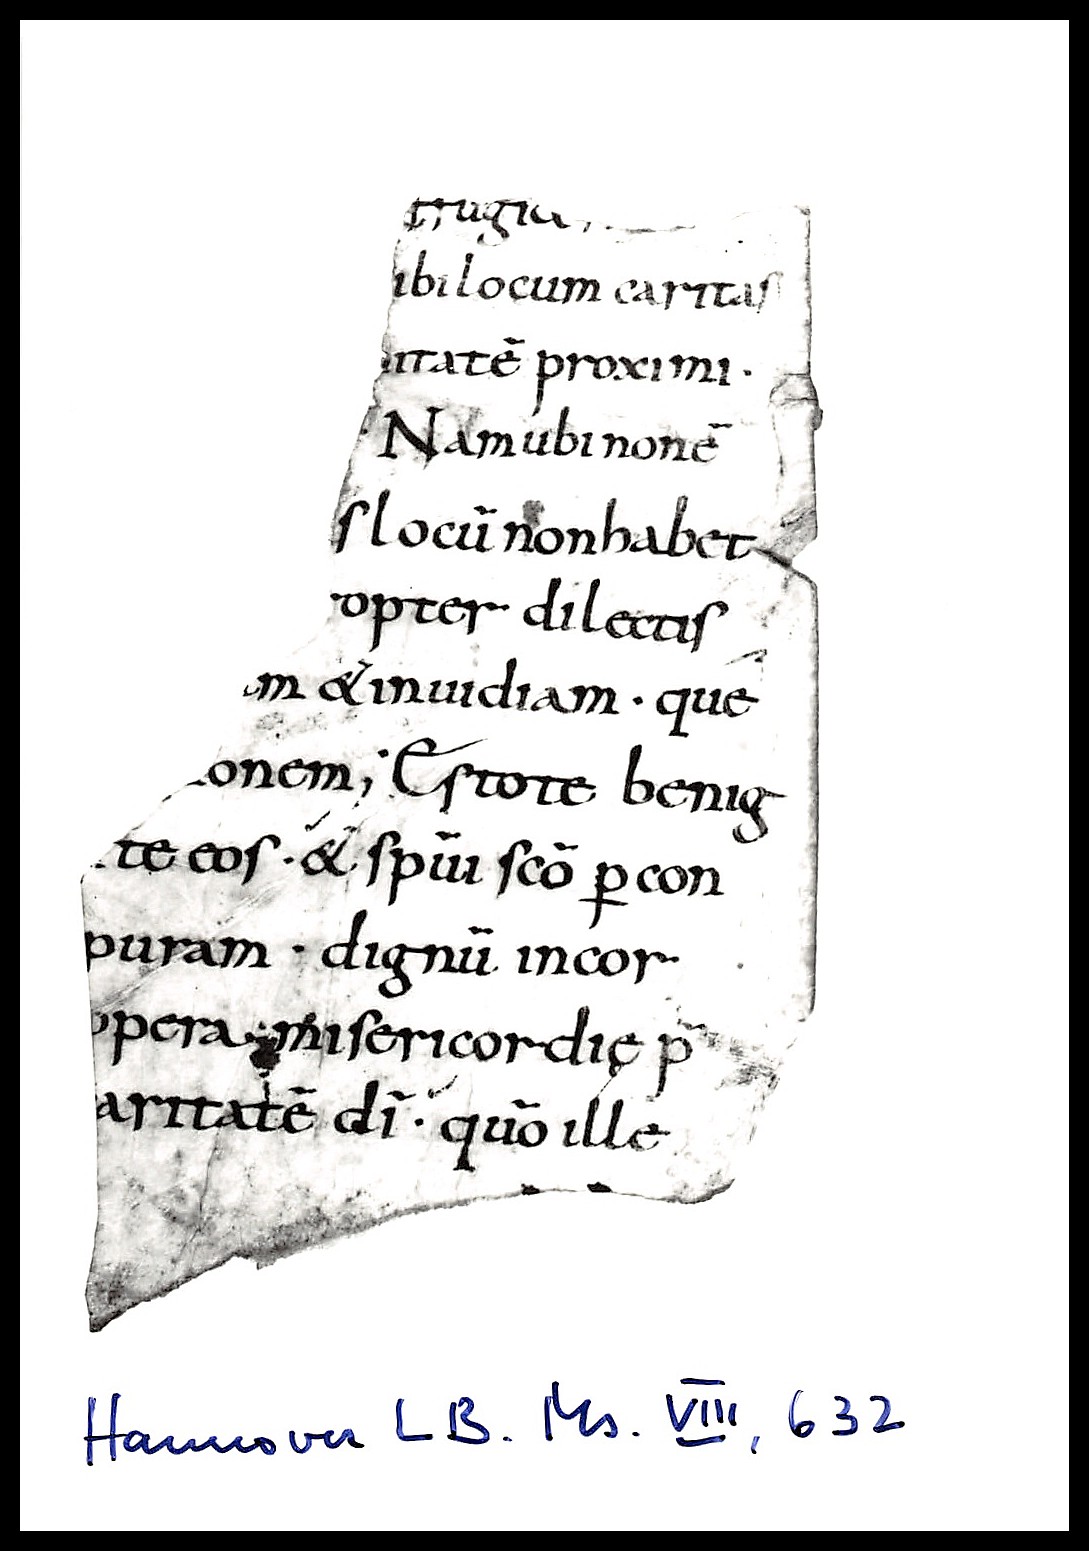 ibi locum caritas
itatē proximi ·
Nam ubi non ē
s locū non habet
opter dilectis
m & inuidiam · que
onem; Estote benig
te eos · & spūi scō ꝑ con
puram · dignū in cor
opera misericordię p̄
aritatē dī · quō ille
Hannover LB. Ms. VIII, 632